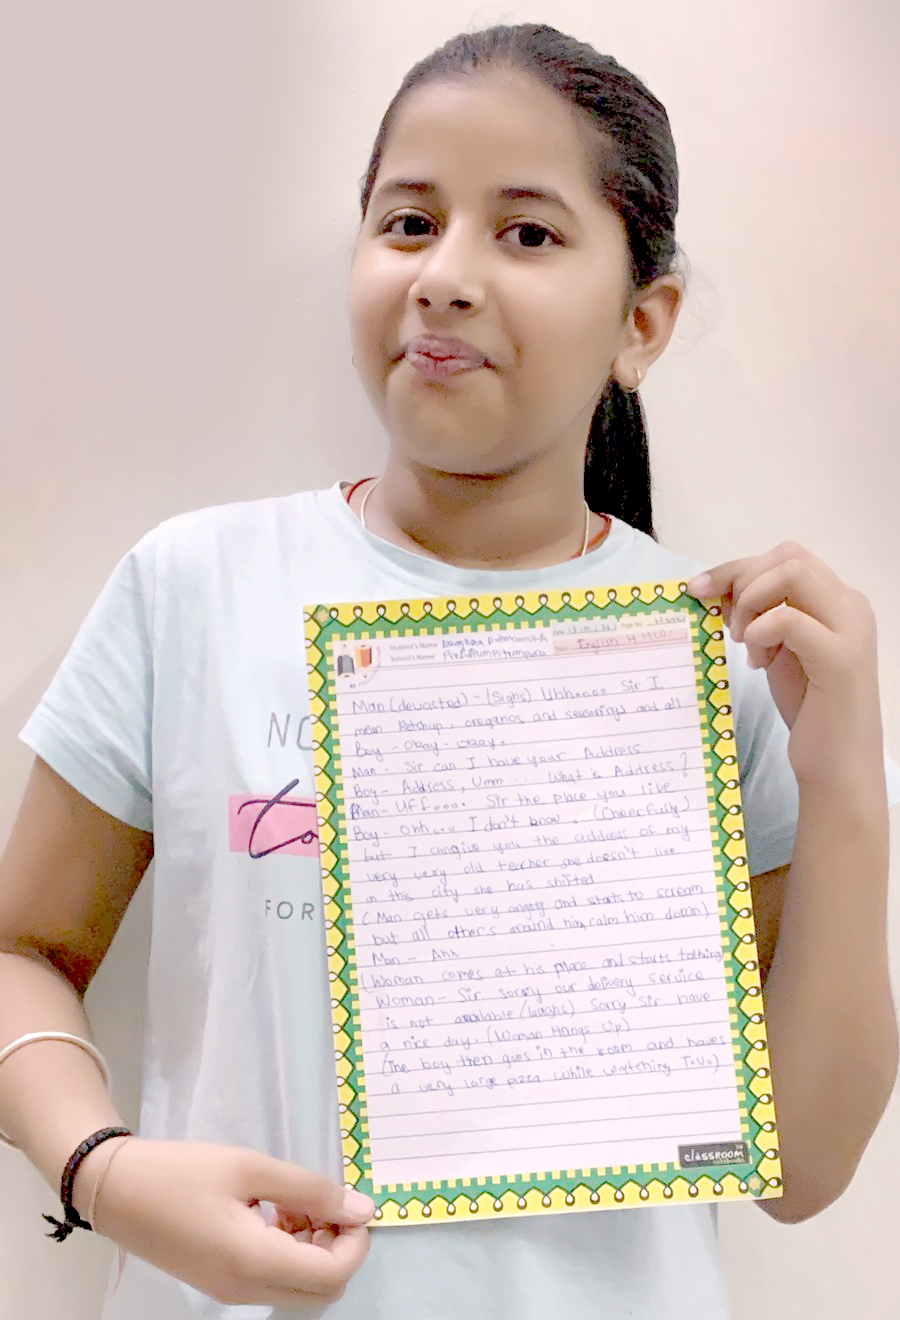 NO
to
FOR
Student's Name
School's Name
Date
Page No.
English H.M.W
Man (devasted) - (Sighs) Uhhoooo Sir I
mean Ketchup, oreganos and seasonings and all
Boy - Okay - okay.
Man - Sir can I have your Address
Boy - Address, Umm .. What is Address?
Man - Uffooo. Sir the place you live
Boy - Ohh... I don't know. (Cheerfully)
but I congive you the address of my
very very old teacher she doesn't live
in this city she has shifted
(Man gets very angry and starts to scream
but all others around him, calm him down)
Man - Ahh
(Woman comes at his place and starts talking
Woman - Sir sorry our delivery service
is not available (laughs) Sorry Sir have
a nice day. (Woman Hangs Up)
(The boy then goes in the room and haves
a very large pizza while watching T.V.)
classROOM